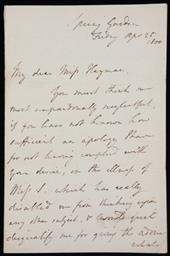 Spring Garden
Friday Apr 25
1800
My dear Miss Hayman.
You must think me
most unpardonably neglectful,
if you have not known how
sufficient an apology I have
for not having complied with
your desire, in the illness of
Miss S. which has really
disabled me from thinking upon
any other subject, & quite
disqualify me for giving the
whole